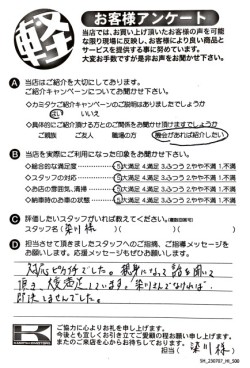 軽
お客様アンケート
当店では、お買い上げ頂いたお客様の声を可能
な限り現場に反映し、お客様により良い商品と
サービスを提供する事に努めています。
大変お手数ですが是非お声をお聞かせ下さい。
A 当店はご紹介を大切にしております。
ご紹介キャンペーンについてお聞かせ下さい。
◇カミタケご紹介キャンペーンのご説明はありましたでしょうか
はい いいえ
◇具体的にご紹介頂ける方とのご関係をお聞かせ頂けますでしょうか
ご親族 ご友人 職場の方 機会があれば紹介したい
B 当店を実際にご利用になった印象をお聞かせ下さい。
◇総合的な満足度 5.大満足 4.満足 3.ふつう 2.やや不満 1.不満
◇スタッフの対応 5.大満足 4.満足 3.ふつう 2.やや不満 1.不満
◇お店の雰囲気、清掃 5.大満足 4.満足 3.ふつう 2.やや不満 1.不満
◇納車時のお車の状態 5.大満足 4.満足 3.ふつう 2.やや不満 1.不満
C 評価したいスタッフがいれば教えてください。(複数回答可)
スタッフ名( 梁川様 )( )( )
D 担当させて頂きましたスタッフへのご指摘、ご指導メッセージを
お願いします。応援メッセージもぜひお願いします。
対応ピカイチでした。親身になって話を聞いて
頂き、大変満足しています。梁川さんでなければ、
即決しませんでした。
ご協力に心よりお礼を申し上げます。
今後とも宜しくお引き立てご愛顧の程お願い申し上げます。
またのご来店を心からお待ちしております。
担当( 梁川様 )
SH_230707_HI_500